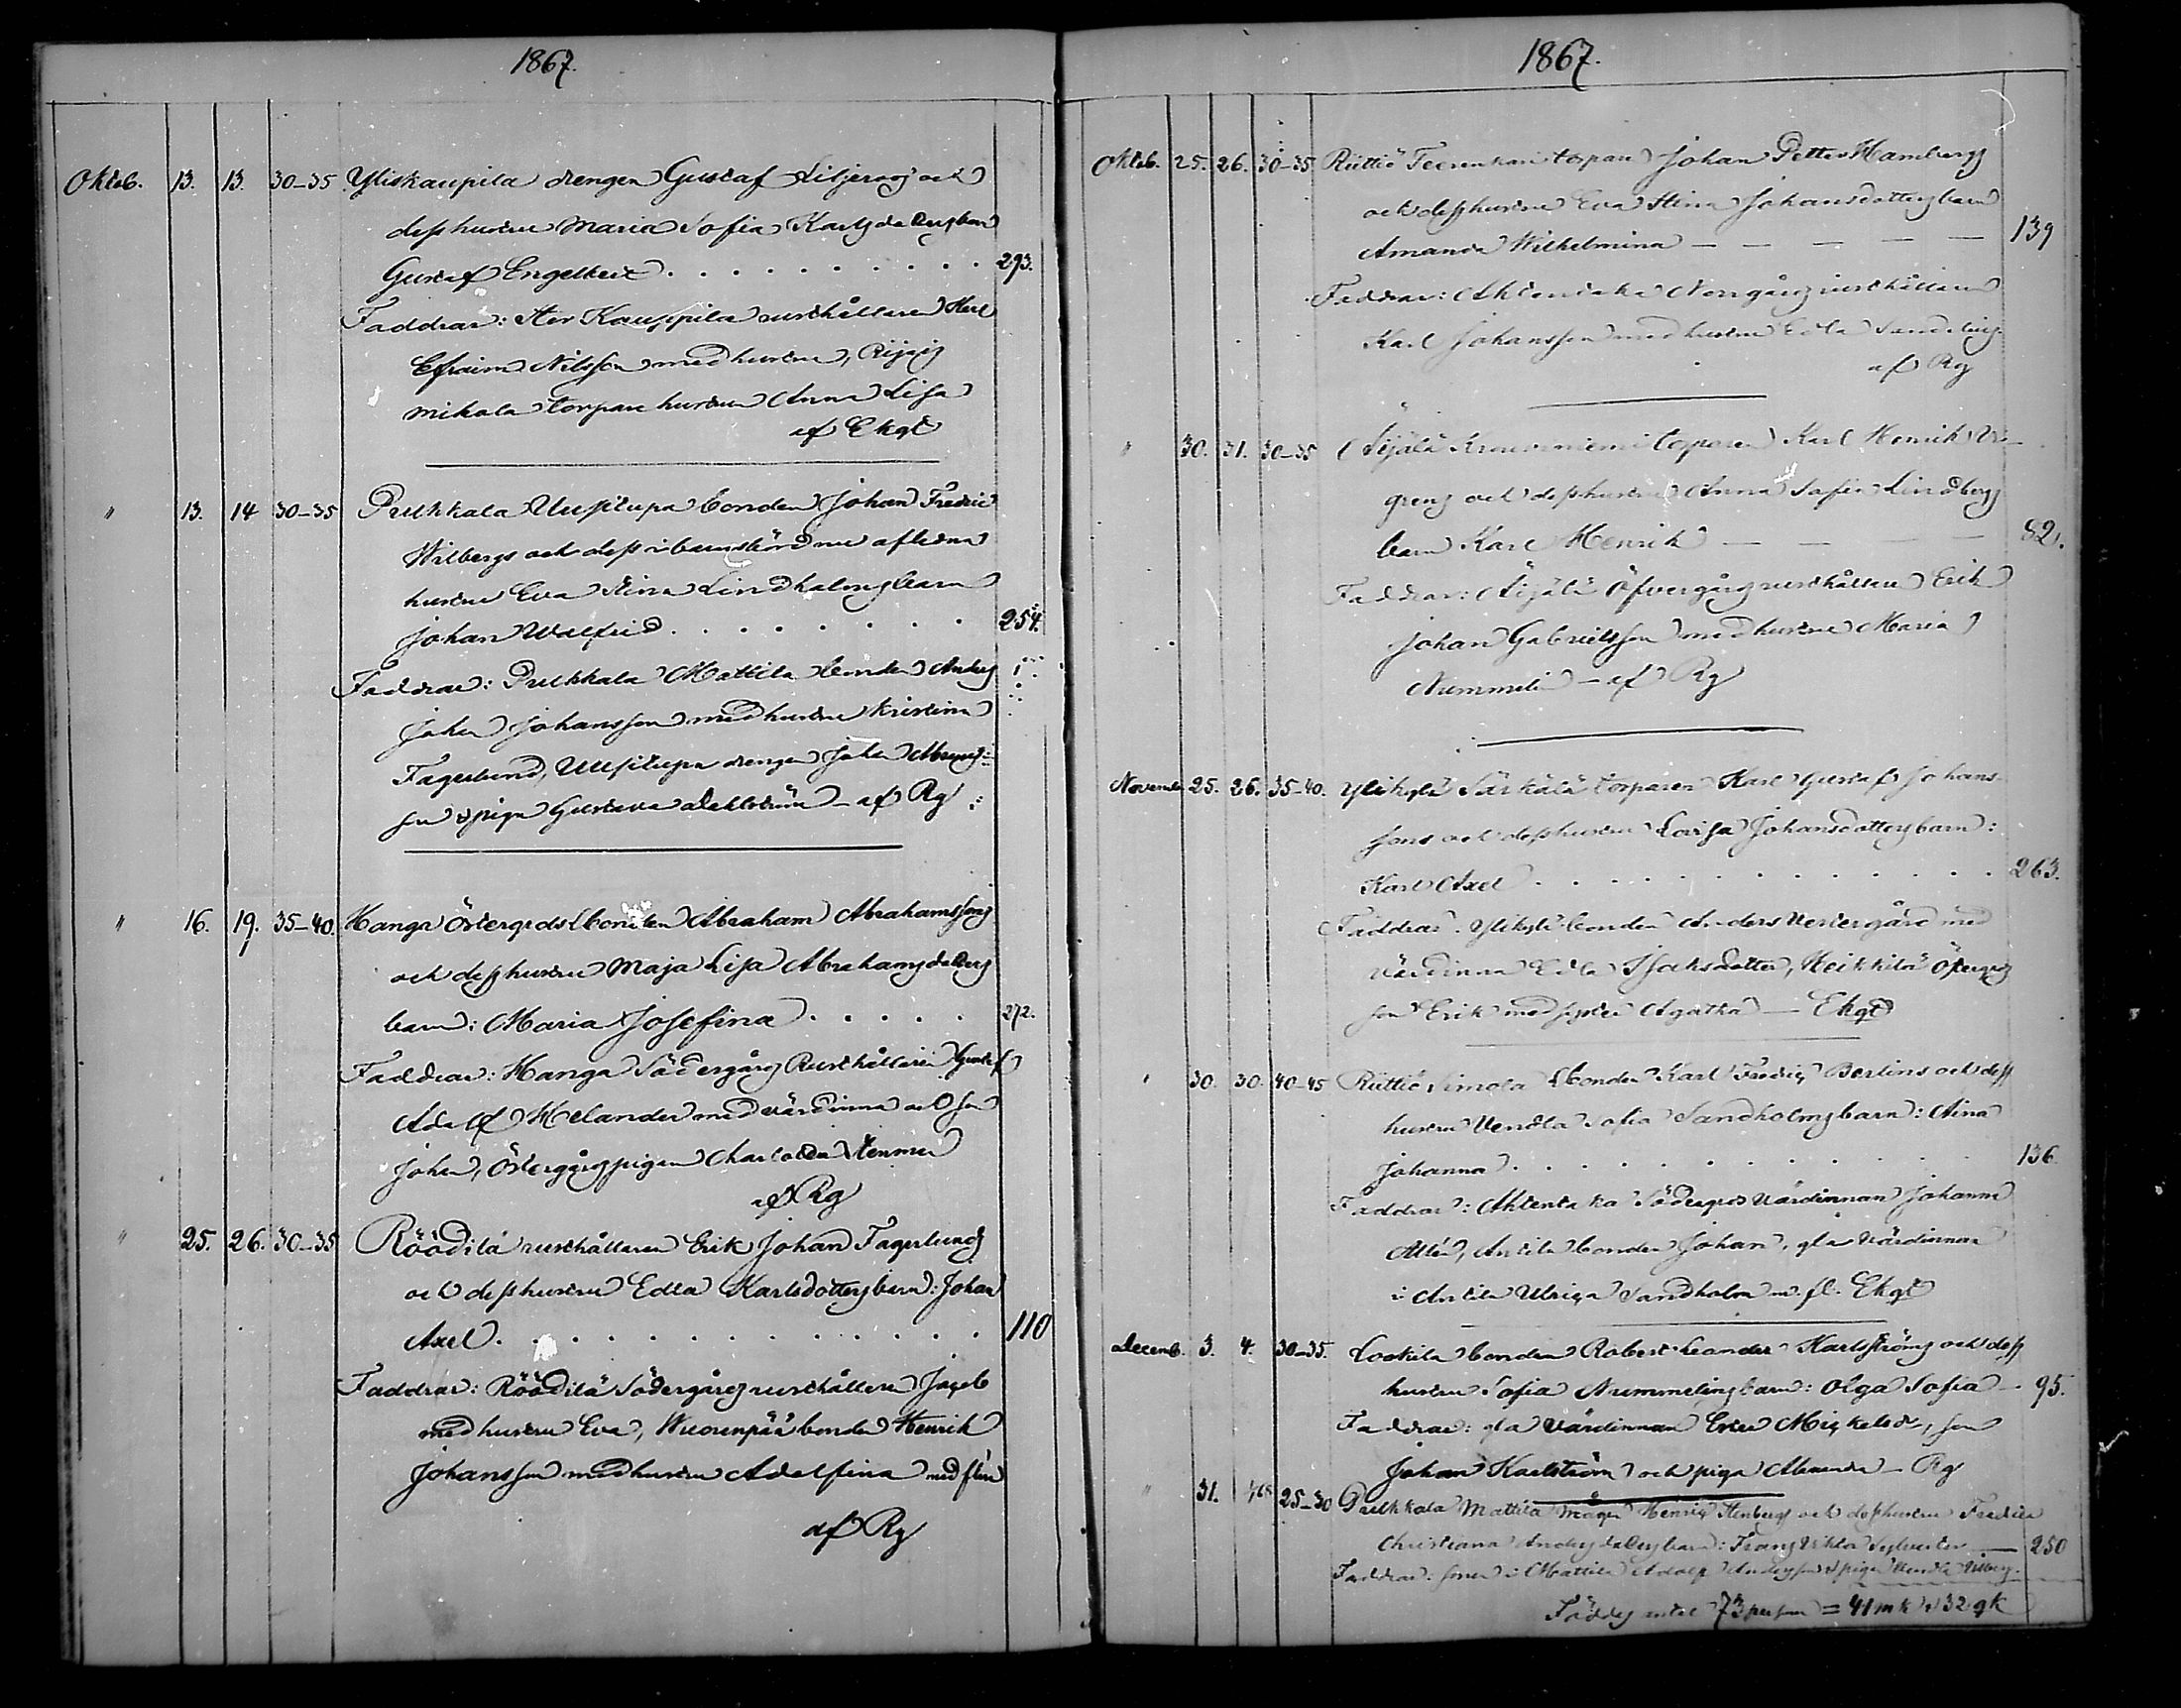 1867.
Oktob. 13. 13. 30-35. Yliskaupila drengen Gustaf och
dess hustru Maria Sofia Karls barn
Gustaf Engelbert . . . . . . . . . . 293.
Faddrar: Kauppila rusthållaren
Efraim Nilsson med hustru,
mikola torpare hustrun Anna Lisa
af Ekqt
" 13. 14 30-35 Pukkala Uusitupa bonden Johan Fredric
Wilbergs och dess i barnsbörd nu aflidna
hustru Eva Stina Lindholms barn
Johan Walfrid . . . . . . . . 254.
Faddrar: Pukkala Mattila bonden Anders
Johan Johansson med hustru Kristina
Fagerlund, Uusitupa drengen Johan
son & piga Gustava Dahlström - af Rg
" 16. 19. 35-40. Hanga Östergrds bonden Abraham Abrahamssons
och dess hustru Maja Lisa Abrahams
barn: Maria Josefina . . . . . 272.
Faddrar: Hanga Södergårds Rusthållaren Gustaf
Adolf Helander med värdinna och son
Johan, Östergårds pigan Charlotta
af Rg
" 25. 26. 30-35 Röödilä rusthållaren Erik Johan Fagerlunds
och dess hustru Edla Karlsdotters barn: Johan
Axel . . . . . . . . . . . . . 110
Faddrar: Röödilä Södergårds rusthållare Jacob
med hustru Eva, Wuorenpää bonden Henrik
Johansson med hustru Adolfina med flere
af Rg
1867.
Oktob. 25. 26. 30-35 Riittiö Teerenkari torpare Johan Petter Hambergs
och dess hustru Eva Stina Johansdotters barn
Amanda Wilhelmina — — — — — 139
Faddrar: Ahlentaka Norrgårds rusthållaren
Karl Johansson med hustru Edla
af Rg
" 30. 31. 30-35 Äijälä torparen Karl Henrik
grens och dess hustru Anna Sofia Lindbergs
barn Karl Henrik — — — — 82.
Faddrar: Äijälä Öfvergårds rusthållare Erik
Johan Gabrielsson med hustru Maria
Nummelin - af Rg
November 25. 26. 35-40. Ylikylä Särkälä torparen Karl Gustaf Johans-
sons och dess hustru Lovisa Johansdotters barn:
Karl Axel . . . . . . . . . . . . . . 263.
Faddrar: Ylikylä bonden Anders Westergård med
värdinna Edla Isaksdotter, Heikkilä
son Erik med syster Agatha — Ekqt
" 30. 30. 40-45 Riittiö Simola bonden Karl Fredric Berlins och dess
hustru Vendla Sofia Sandholms barn: Aina
Johanna . . . . . . . . . . 136.
Faddrar: Ahlentaka Södergrds Värdinnan Johanna
Allén, Antila bonden Johan, gla Värdinnan
i Antila Ulrica Sandholm m. fl. Ekqt
Decemb. 3. 4. 30-35. Lookila bonden Robert Leander Karlströms och dess
hustru Sofia Nummelins barn: Olga Sofia — 95.
Faddrar: gla Värdinnan Mickelsdr, son
Johan Karlström och piga Amanda — Rg
" 31. 25-30 Pukkala Mattila mågen Henric Stenbergs och dess hustru Fredrica
Christiana Anders barn: Frans Viktor Sylvester — 250
Faddrar: sonen i Mattila Adolf Andersson & piga Vendla Wilberg.
Föddes antal 73 person = 41 mk & 32 qk